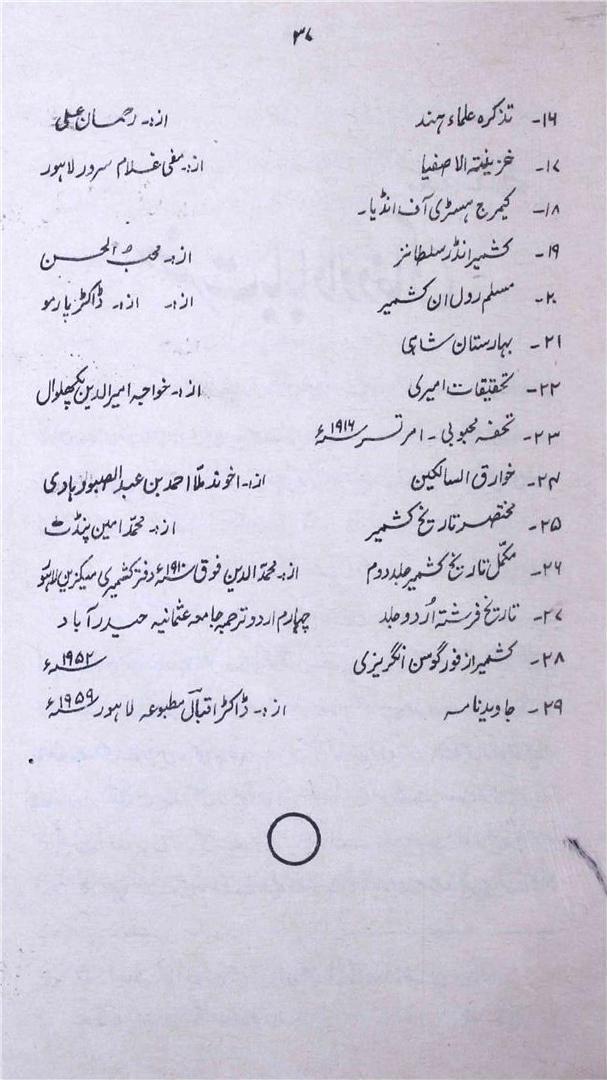 ۳۷
۱۶۔ تذکرہ علماء ہند از:۔ رحمان علی
۱۷۔ خزینتہ الاصفیا از:۔ مفتی غلام سرور لاہور
۱۸۔ کیمرج ہسٹری آف انڈیا۔
۱۹۔ کشمیر انڈر سلطانز از:۔ محب الحسن
۲۰۔ مسلم رول ان کشمیر از:۔ از:۔ ڈاکٹر پارمو
۲۱۔ بہارستان شاہی
۲۲۔ تحقیقات امیری از:۔ خواجہ امیر الدین پکھلوال
۲۳۔ تحفہ محبوبی۔ امرتسر ۱۹۱۶ء
۲۴۔ خوارق السالکین از:۔ اخوند ملّا احمد بن عبدالصبور
۲۵۔ مختصر تاریخ کشمیر از:۔ محمد امین پنڈت
۲۶۔ مکمّل تاریخ کشمیر جلد دوم از:۔ محمد الدین فوق ۱۹۱۰ء دفتر کشمیری میگزین لاہور
۲۷۔ تاریخ فرشتہ اُردو جلد چہارم اردو ترجمہ جامعہ عثمانیہ حیدر آباد
۲۸۔ کشمیر از فورگوسن انگریزی ۱۹۵۲ء
۲۹۔ جاوید نامہ از:۔ ڈاکٹر اقبالؔ مطبوعہ لاہور ۱۹۵۹ء